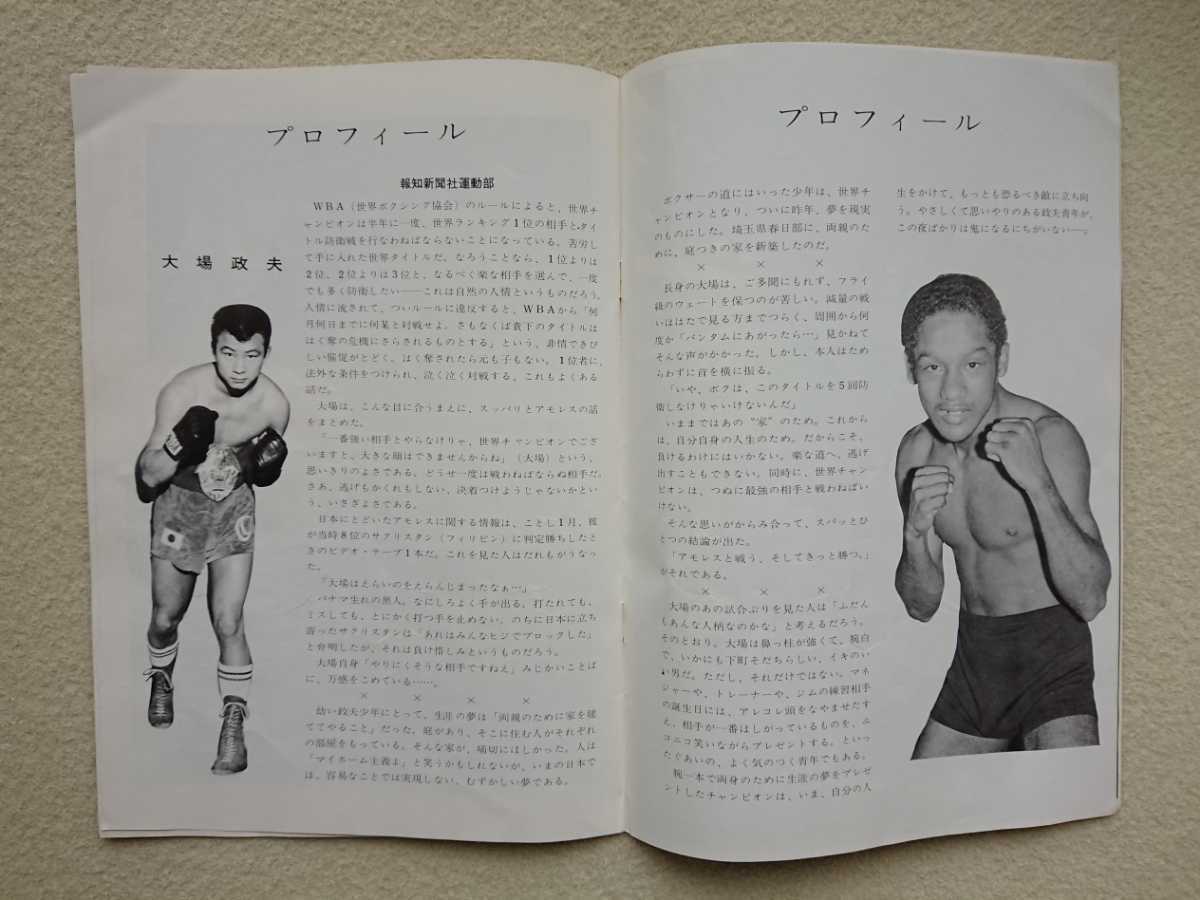 プロフィール
報知新聞社運動部
大場政夫
WBA（世界ボクシング協会）のルールによると、世界チ
ャンピオンは半年に一度、世界ランキング1位の相手とタイ
トル防衛戦を行なわねばならないことになっている。苦労し
て手に入れた世界タイトルだ。なろうことなら、1位よりは
2位、2位よりは3位と、なるべく楽な相手を選んで、一度
でも多く防衛したい――これは自然の人情というものだろう。
人情に流されて、ついルールに違反すると、WBAから「何
月何日までに何某と対戦せよ。さもなくば貴下のタイトルは
はく奪の危機にさらされるものとする」という、非情できび
しい催促がとどく。はく奪されたら元も子もない。1位者に、
法外な条件をつけられ、泣く泣く対戦する。これもよくある
話だ。
大場は、こんな目に合うまえに、スッパリとアモレスの話
をまとめた。
「一番強い相手とやらなけりゃ、世界チャンピオンでござ
いますと、大きな顔はできませんからね」（大場）という、
思いきりのよさである。どうせ一度は戦わねばならぬ相手だ。
さあ、逃げもかくれもしない、決着つけようじゃないかとい
う、いさぎよさである。
日本にとどいたアモレスに関する情報は、ことし1月、彼
が当時8位のサクリスタン（フィリピン）に判定勝ちしたと
きのビデオ・テープ1本だ。これを見た人はだれもがうなっ
た。
「大場はえらいのをえらんじまったなぁ…」
パナマ生れの黒人。なにしろよく手が出る。打たれても、
ミスしても、とにかく打つ手を止めない。のちに日本に立ち
寄ったサクリスタンは「あれはみんなヒジでブロックした」
と弁明したが、それは負け惜しみというものだろう。
大場自身「やりにくそうな相手ですねえ」みじかいことば
に、万感をこめている……。
×　×　×　×
幼い政夫少年にとって、生涯の夢は「両親のために家を建
ててやること」だった。庭があり、そこに住む人がそれぞれ
の部屋をもっている。そんな家が、痛切にほしかった。人は
「マイホーム主義よ」と笑うかもしれないが、いまの日本で
は、容易なことでは実現しない、むずかしい夢である。
プロフィール
ボクサーの道にはいった少年は、世界チ
ャンピオンとなり、ついに昨年、夢を現実
のものにした。埼玉県春日部に、両親のた
めに、庭つきの家を新築したのだ。
×　×　×
長身の大場は、ご多聞にもれず、フライ
級のウェートを保つのが苦しい。減量の戦
いははたで見る方までつらく、周囲から何
度か「バンタムにあがったら…」見かねて
そんな声がかかった。しかし、本人はため
らわずに首を横に振る。
「いや、ボクは、このタイトルを5回防
衛しなけりゃいけないんだ」
いままではあの“家”のため。これから
は、自分自身の人生のため。だからこそ、
負けるわけにはいかない。楽な道へ、逃げ
出すこともできない。同時に、世界チャン
ピオンは、つねに最強の相手と戦わねばい
けない。
そんな思いがからみ合って、スパッとひ
とつの結論が出た。
「アモレスと戦う、そしてきっと勝つ。」
がそれである。
×　×　×
大場のあの試合ぶりを見た人は「ふだん
もあんな人柄なのかな」と考えるだろう。
そのとおり。大場は鼻っ柱が強くて、腕白
で、いかにも下町そだちらしい、イキのい
い男だ。ただし、それだけではない。マネ
ジャーや、トレーナーや、ジムの練習相手
の誕生日には、アレコレ頭をなやませたす
え、相手が一番ほしがっているものを、ニ
コニコ笑いながらプレゼントする。といっ
たぐあいの、よく気のつく青年でもある。
腕一本で両身のために生涯の夢をプレゼ
ントしたチャンピオンは、いま、自分の人
生をかけて、もっとも恐るべき敵に立ち向
う。やさしくて思いやりのある政夫青年が、
この夜ばかりは鬼になるにちがいない――。